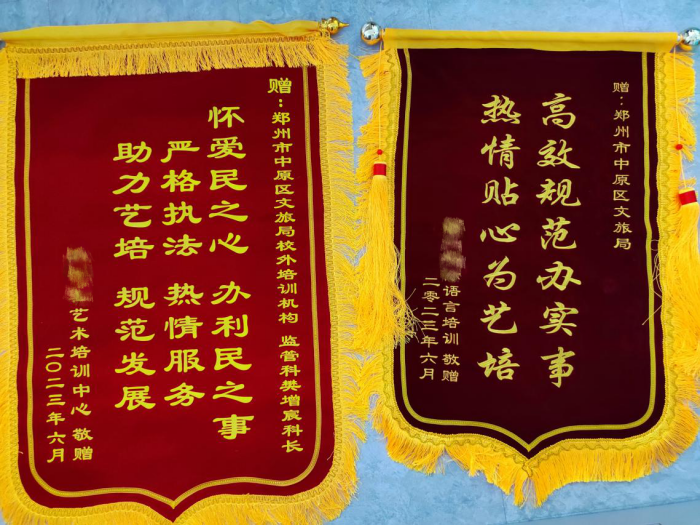 赠：郑州市中原区文旅局校外培训机构 监管科樊增宸科长
怀爱民之心 办利民之事
严格执法 热情服务
助力艺培 规范发展
艺术培训中心 敬赠
二〇二三年六月
赠：郑州市中原区文旅局
高效规范办实事
热情贴心为艺培
语言培训 敬赠
二零二三年六月